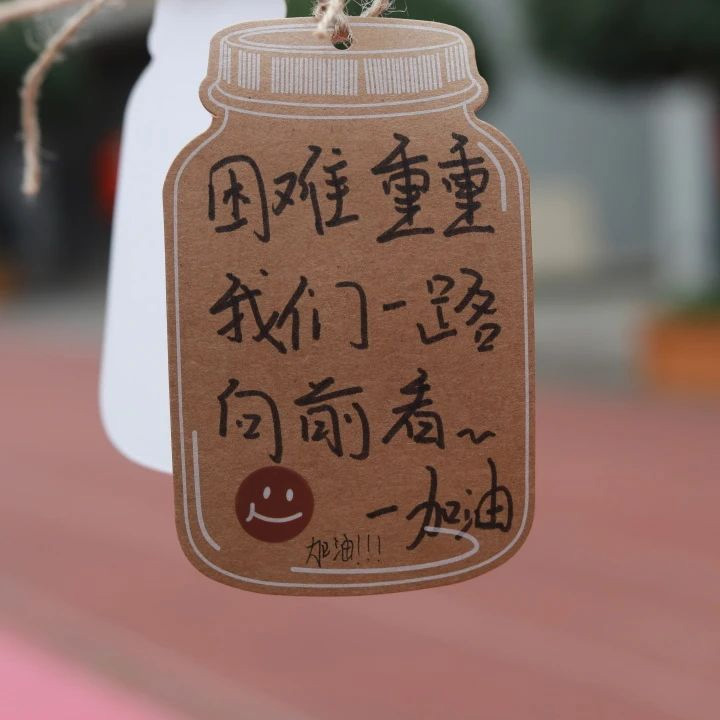 困难重重
我们一路
向前看~
一加油
加油!!!